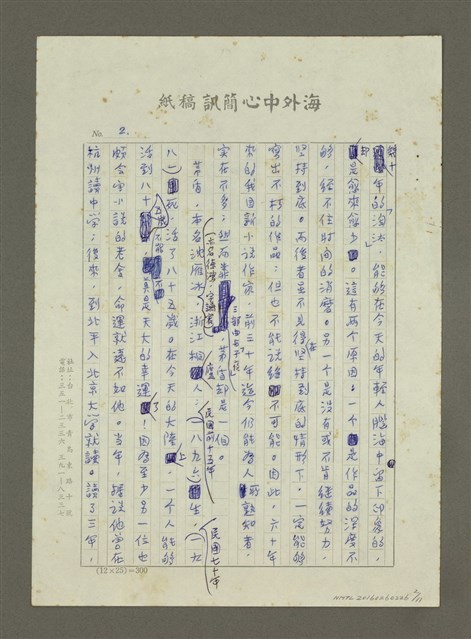 海外中心簡訊稿紙
No. 2.
幾十年的淘汰，能夠在今天的年輕人腦海中留下印象的，
是愈來愈少。這有兩個原因。一個是作品的深度不
夠，經不住時間的消磨。另一個是沒有或不肯繼續努力，
堅持到底。而後者並不見得在堅持到底的情形下，一定能夠
寫出不朽的作品；但也不能說絕不可能。因此，六十年
來的我國新小說作家，前三十年迄今仍能為人所熟知者，
實在不多；然而，茅盾卻是一個。
茅盾，本名沈雁冰，浙江桐人：一八九六生，一九
八一死，活了八十五歲。在今天的大陸上，一個人能夠
活到八十五歲，真是天大的幸運了！因為至少另一位也
頗會寫小說的老舍，命運就遠不如他。當年，據說他曾在
杭州讀中學；後來，到北平入北京大學就讀。讀了三年，
民國前十五年
民國七十年
(12×25)=300
NMTL20160260226 2/11